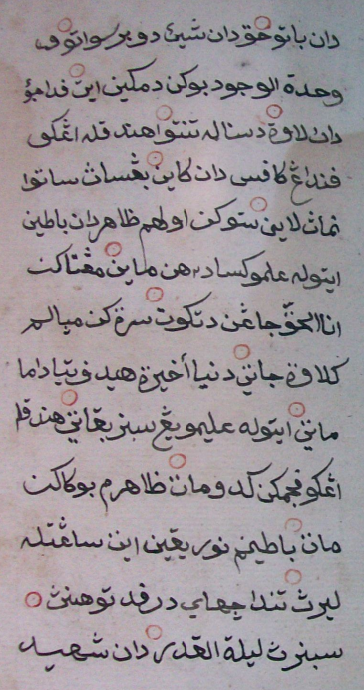 دان باتو حق دان شيئ دوبر سواتو
وحدة الوجود بوكن دمكين اين فدامو
دان لاوة دسناله تنتو اهندقله اڠكى
فنداڠ كافس دان كاين بڠساڽ ساتوا
نماڽ لاين ستوكن اولهم ظاهر دان باطين
ايتوله علمو كسادرهن ماين مڠتاكن
انا الحق جاڠن دتكوت سرة كن ميالم
كلاوة جاتي دنيا أخيرة هيدفو تيادا
ماتي ايتوله عليمو يڠ سبنر هندقله
اڠكو فجمكن كدو مات ظاهرم بوكاكن
مات باطينم نور يقين اين ساڠتله
تندا چهاي درفد توهنڽ
سبنرڽ ليلة القدر دان شهيد